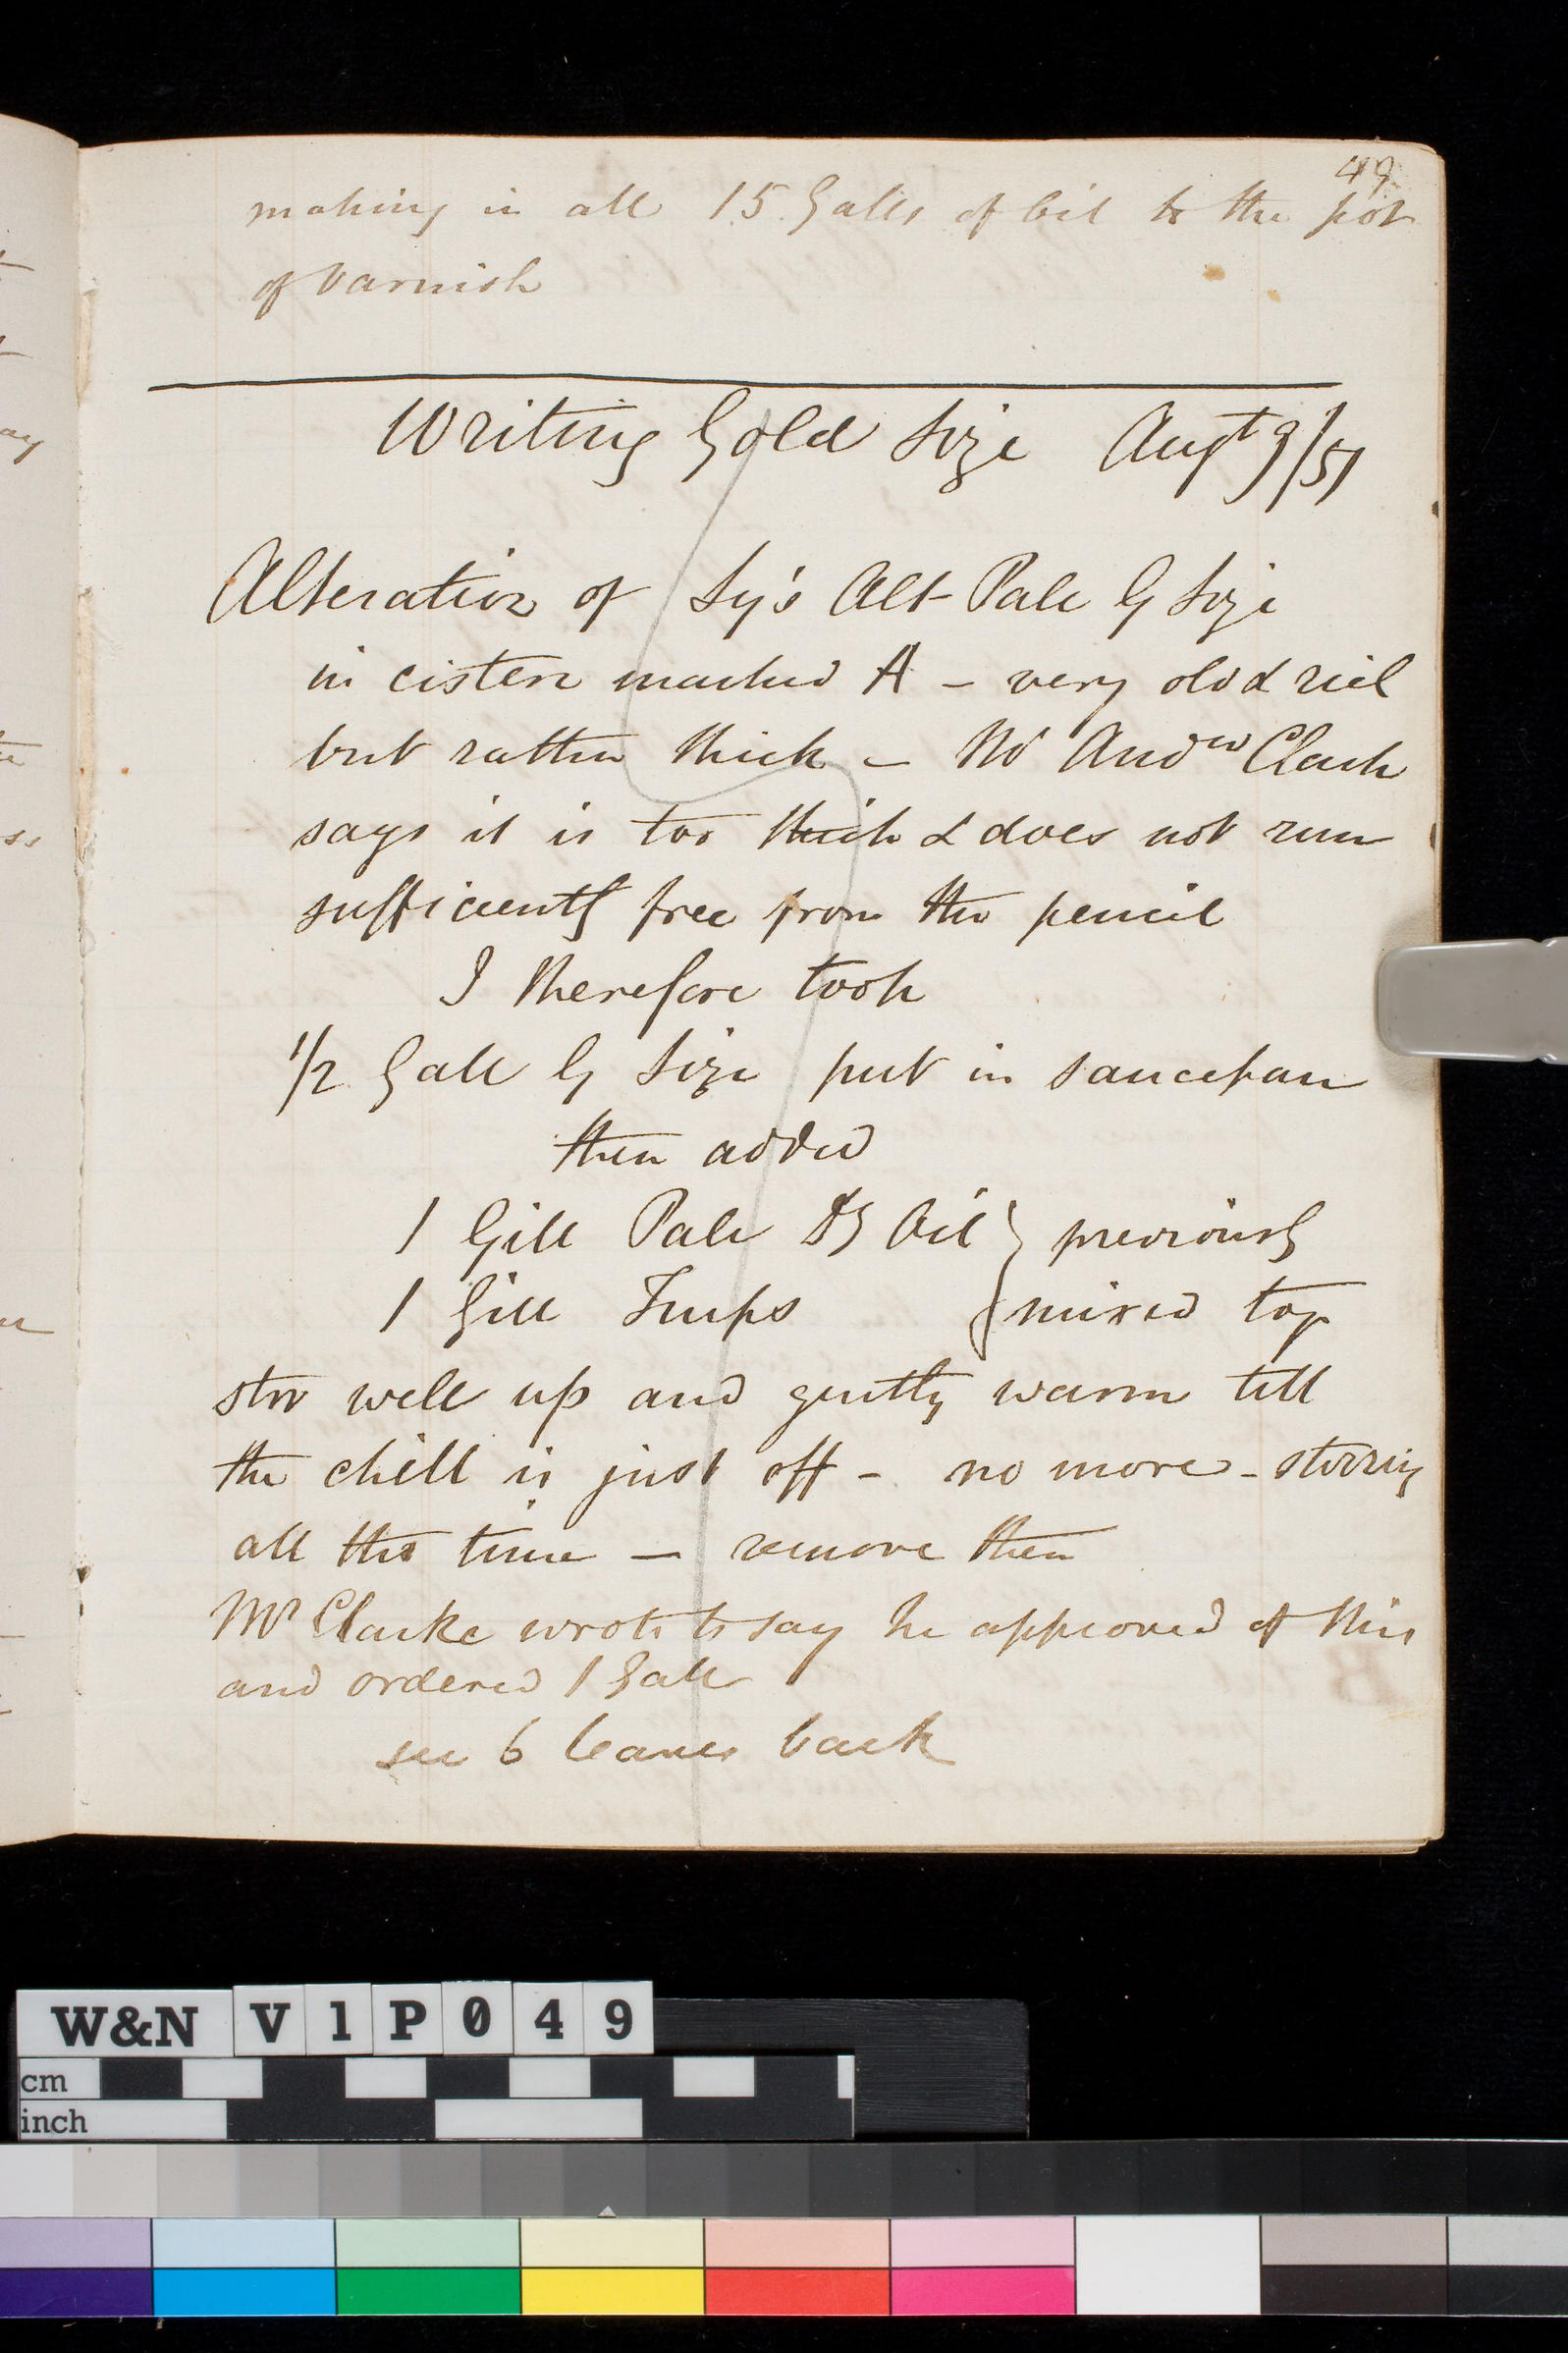 49
making in all 15 Galls of Oil to the pot
of Varnish
Writing Gold Size Augt 9/51
Alteration of Alt Pale G Size
in cistern marked A - very old & rich
but rather thick - Mr Andw Clark
says it is too thick & does not run
sufficiently free from the pencil
I therefore took
1/2 Gall G Size put in saucepan
then added
1 Gill Pale Dg Oil } previously
1 Gill Turps } mixed tog
stir well up and gently warm till
the chill is just off - no more - stirring
all the time - remove then
Mr Clarke wrote to say he approved of this
and ordered 1 Gall
see 6 leaves back
W&N V1P049
cm
inch